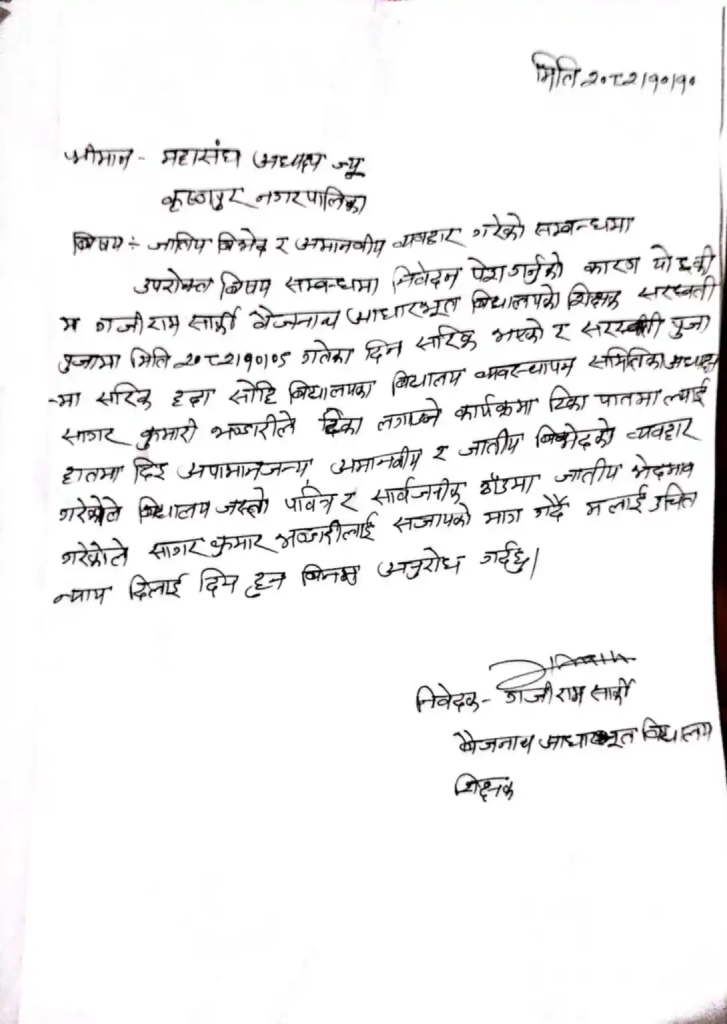 मिति २०८२।१०।१०
श्रीमान - महासंघ अध्यक्ष ज्यू
कृष्णपुर नगरपालिका
बिषय ÷ जातिय बिभेद र अमानवीय व्यवहार गरेको सम्बन्धमा
उपरोक्त बिषय सम्बन्धमा निवेदन पेश गर्नुको कारण यो छ की
म गजीराम सार्की बैजनाथ आधारभूत बिद्यालयको शिक्षक सरस्वती
पुजामा मिति २०८२।१०।०९ गतेका दिन सरिक भएको र सरस्वती पुजा
-मा सरिक हुदा सोहि बिद्यालयका बिद्यालय व्यवस्थापन समितिका अध्यक्ष
सागर कुमारी भण्डारीले टिका लगाउने कार्यक्रममा टिका पातमा ल्याई
हातमा दिइ अपामानजन्य, अमानवीय र जातीय बिभेदको व्यवहार
गरेकोले बिद्यालय जस्तो पवित्र र सार्वजनीक ठाँउमा जातीय भेदभाव
गरेकोले सागर कुमार भण्डारीलाई सजायको माग गर्दै मलाई उचित
न्याय दिलाई दिन हुन बिनम्र अनुरोध गर्दछु।
निवेदक - गजीराम सार्की
बैजनाथ आधारभूत विद्यालय
शिक्षक